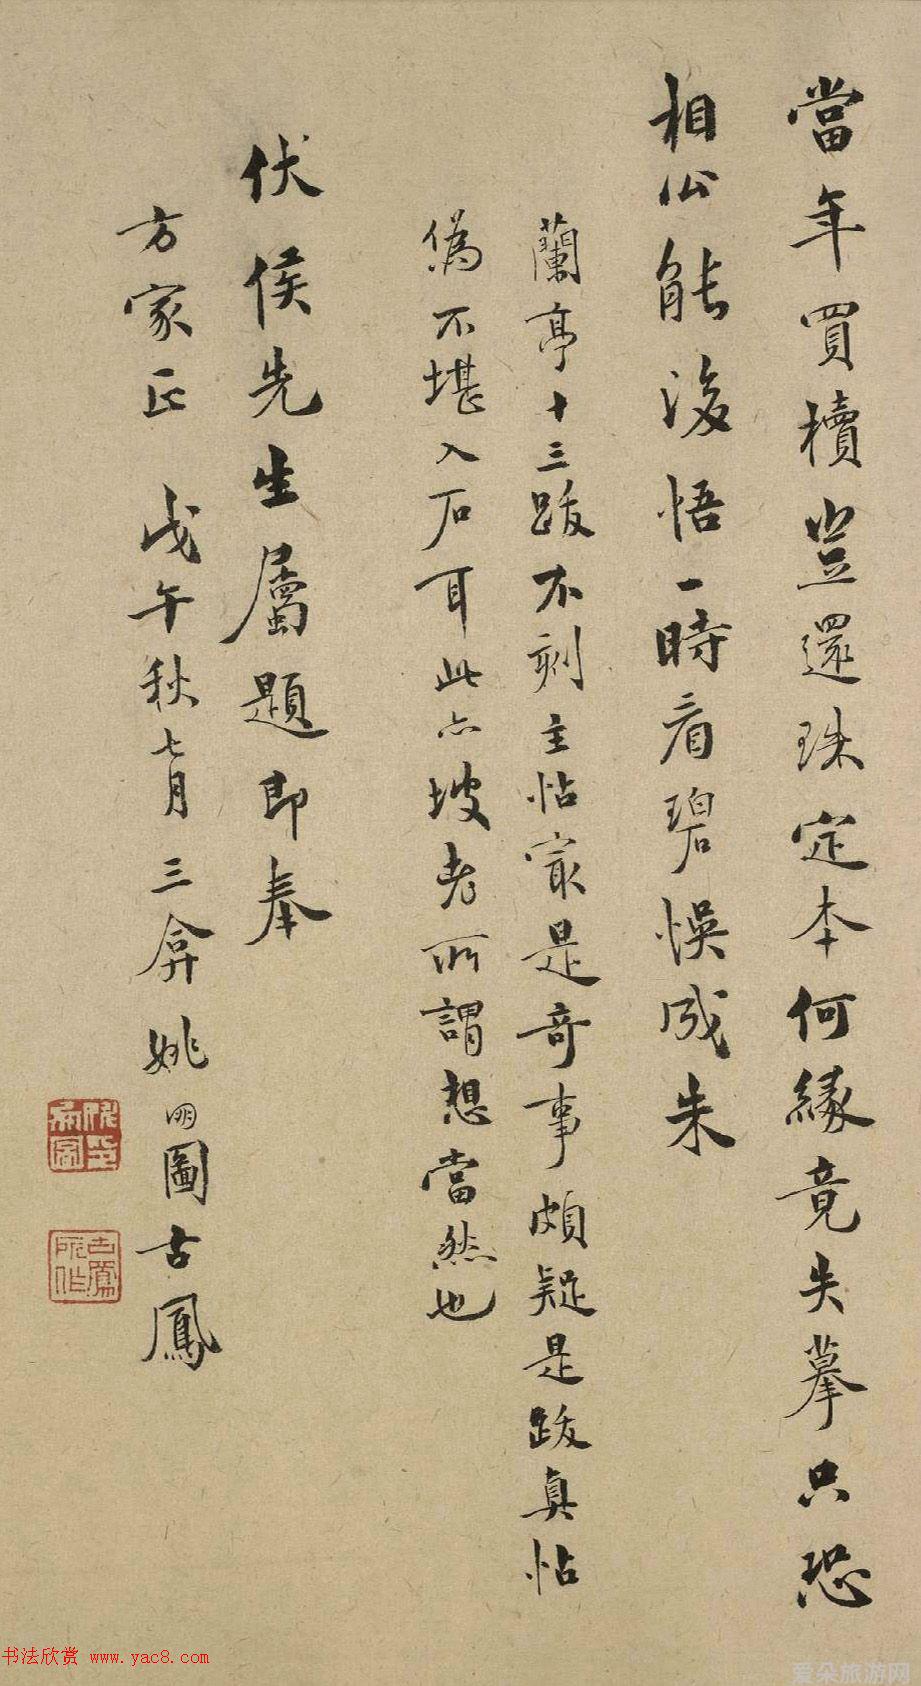 當年買櫝豈還珠定本何緣竟失摹只恐
相公能後悟一時看碧悞成朱
蘭亭十三跋不刻主帖最是奇事頗疑是跋真帖
偽不堪入石耳此亦坡老所謂想當然也
伏侯先生屬題即奉
方家正 戊午秋七月三弇姚明圖古鳳
书法欣赏 www.yac8.com
爱朵旅游网